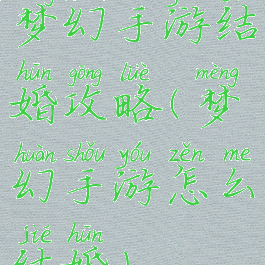 梦幻手游结
hūn gōng lüè mèng
婚攻略(梦
huàn shǒu yóu zěn me
幻手游怎么
jié hūn
结婚)